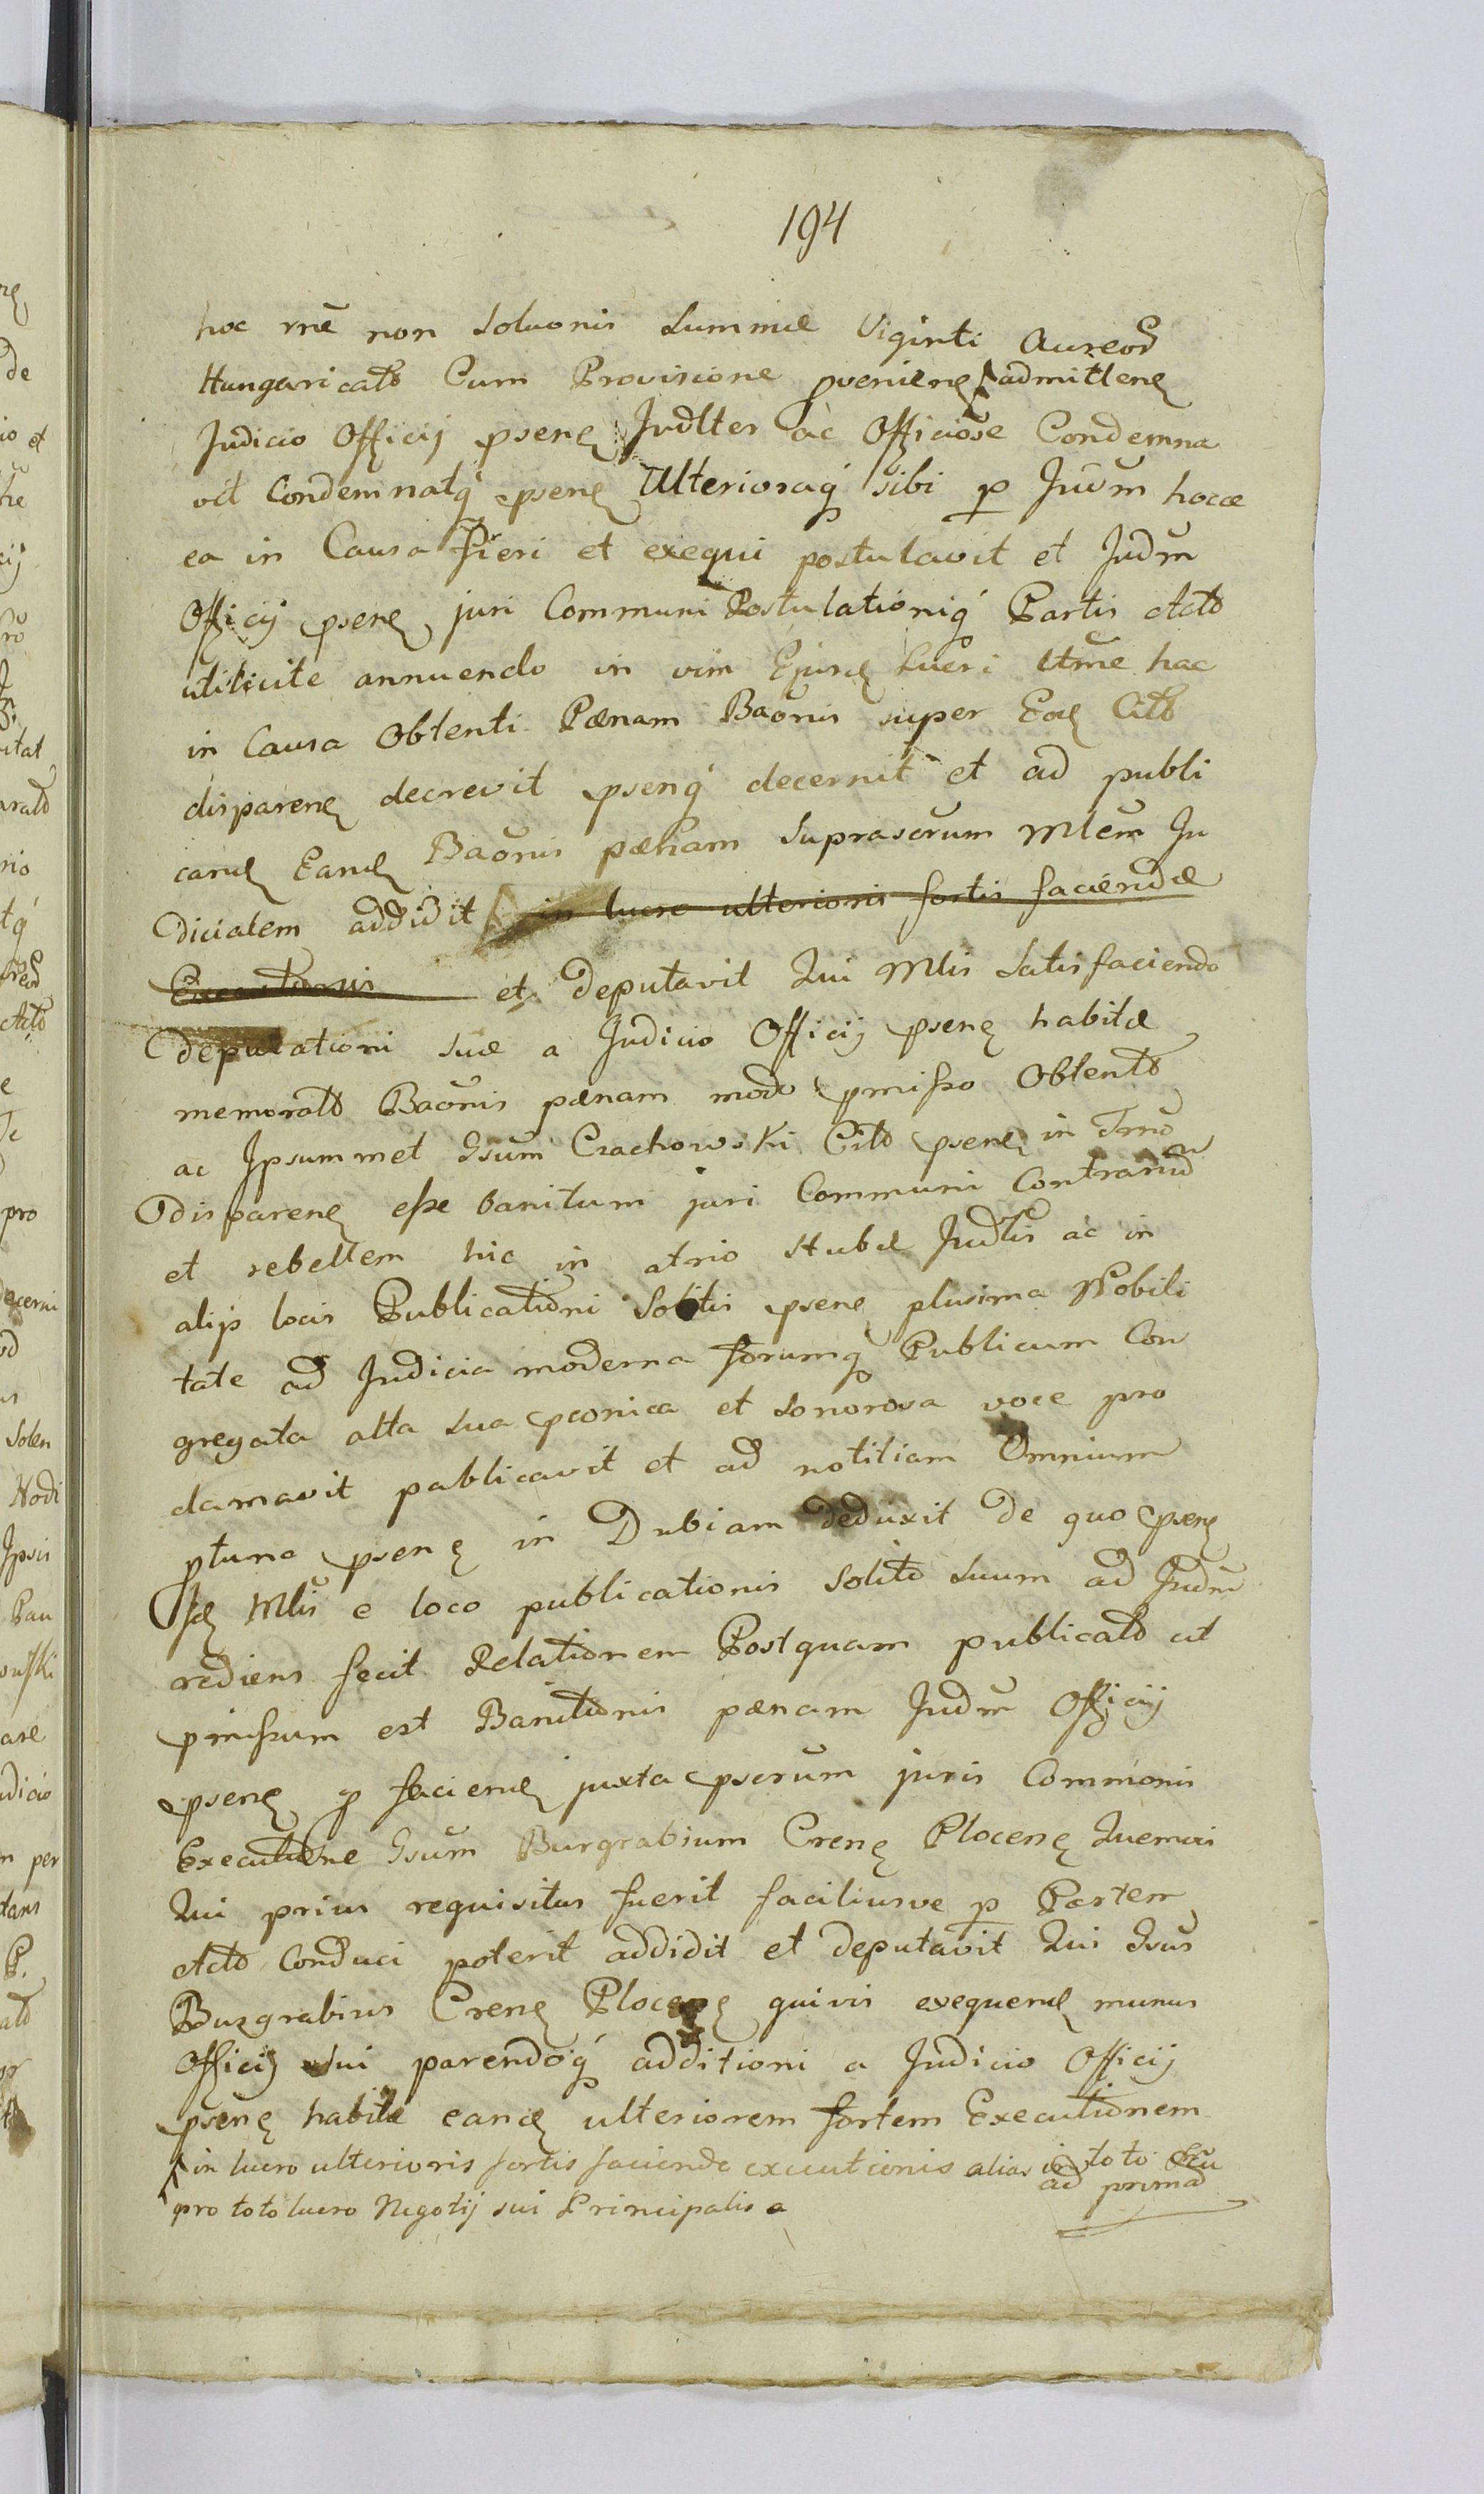 194
hoc rnē non solvonis summæ Viginti Aureor
Hungaricalo Cum Provisione pveniene admittene
Judicio Officij psene Judlter ac Officiose Condemna
vit Condemnatq psene Ulterioraq sibi p Juūm hocæ
ea in Causa fieri et exequi postulavit et Judm̄
Officij psene juri Communi Postulationiq Partis Acto
utilicite annuendo in vim Ejusd Lucri Utme hac
in Causa Obtenti Pænam Baōnis super Eod Cito
disparene decrevit pseng decernit et ad publi
cand Eand Baōnis pænam Suprascrum Mlem Ju
dicialem addidit in lucro ulterioris fortis faciendæ
Executionis et deputavit Qui Mlis Satisfaciendo
deputationi suæ a Judicio Officij psene habitæ
memorato Baōnis pænam modo pmisso Obtento
ac Ipsummet Gsum Czachowski Cito psene in Trno
disparene esse banitum juri Communi Contrariu
et rebellem hic in atrio stubæ Judlis ac in
alijs locis Publicationi Solitis psene plurima Nobili
tate ad Judicia moderna forumq Publicum Con
gregata alta sua pconica et sonorosa voce pro
clamavit publicavit et ad notitiam Omnium
ptunc psene in Dubiam deduxit De quo psene
Jd Mlis e loco publicationis solito suum ad Judm
rediens fecit Relationem Postquam publicato ut
pmissum est Banitionis pænam Judm Officij
psene p faciend juxta pscrum juris Communis
Executione Gsum Burgrabium Crene Plocene Quemvis
Qui prius requisitus fuerit faciliusve p Partem
Acto Conduci poterit addidit et deputavit Qui Gsus
Burgrabius Crene Plocene quivis exequend munus
Officij sui parendoq additioni a Judicio Officij
psene habitæ eand ulteriorem fortem Executionem
in lucro ulterioris fortis faciende executionis alias in toto seu
pro toto lucro Negotij sui Principalis a
ad primā